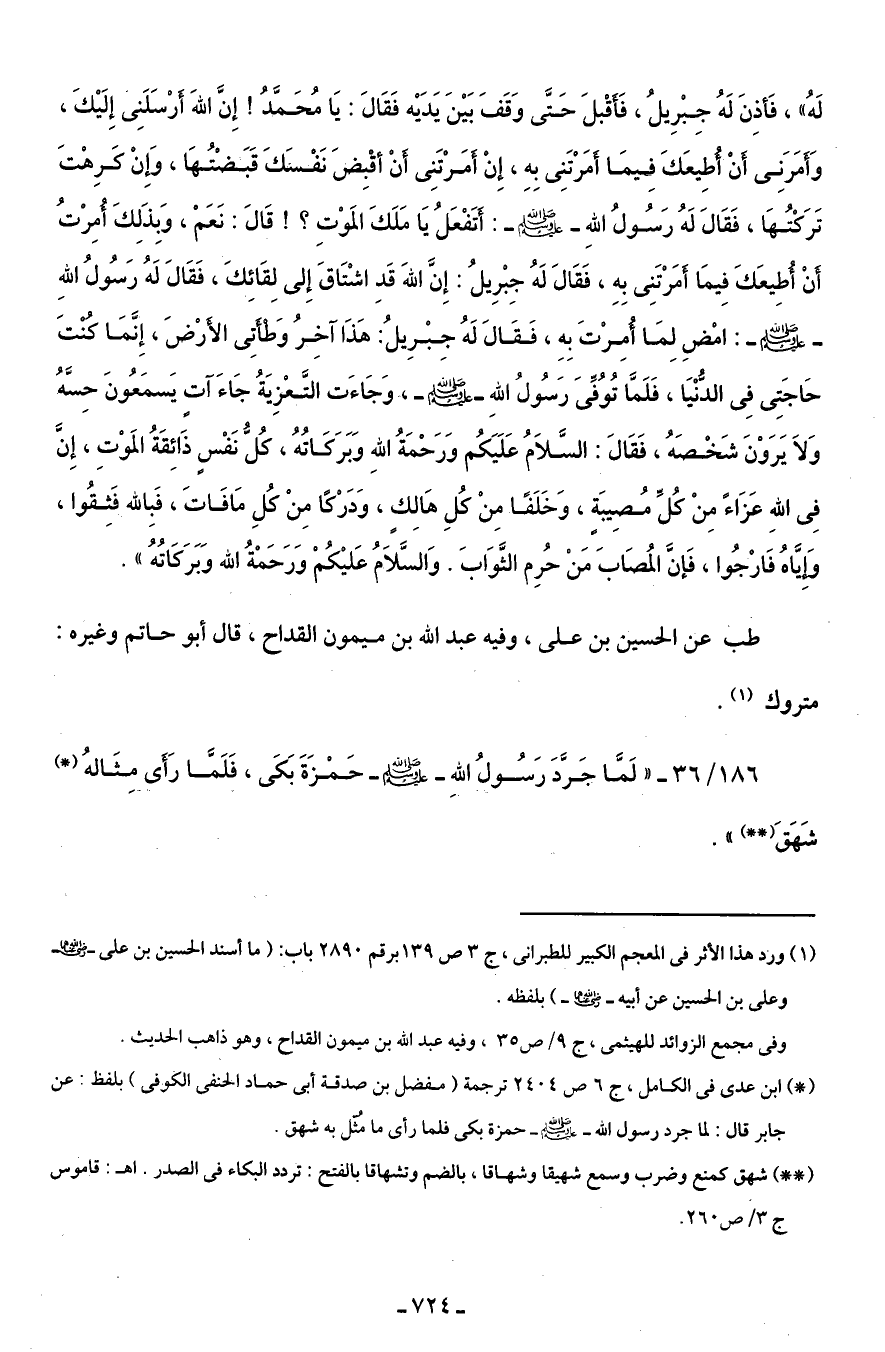 لَهُ» ، فَأَذِنَ لَهُ جِبْرِيلُ ، فَأَقْبَلَ حَتَّى وَقَفَ بَيْنَ يَدَيْهِ فَقَالَ : يَا مُحَمَّدُ ! إِنَّ اللهَ أَرْسَلَنِى إِلَيْكَ ،
وَأَمَرَنِى أَنْ أُطِيعَكَ فِيمَا أَمَرْتَنِى بِهِ ، إِنْ أَمَرْتَنِى أَنْ أَقْبِضَ نَفْسَكَ قَبَضْتُهَا ، وَإِنْ كَرِهْتَ
تَرَكْتُهَا ، فَقَالَ لَهُ رَسُولُ اللهِ - ﷺ - : أَتَفْعَلُ يَا مَلَكَ المَوْتِ ؟ ! قَالَ : نَعَمْ ، وَبِذَلِكَ أُمِرْتُ
أَنْ أُطِيعَكَ فِيمَا أَمَرْتَنِى بِهِ ، فَقَالَ لَهُ جِبْرِيلُ : إِنَّ اللهَ قَدِ اشْتَاقَ إِلَى لِقَائِكَ ، فَقَالَ لَهُ رَسُولُ اللهِ
- ﷺ - : امْضِ لِمَا أُمِرْتَ بِهِ ، فَقَالَ لَهُ جِبْرِيلُ: هَذَا آخِرُ وَطْأَتِى الأَرْضَ ، إِنَّمَا كُنْتَ
حَاجَتِى فِى الدُّنْيَا ، فَلَمَّا تُوُفِّىَ رَسُولُ اللهِ -ﷺ- ، وَجَاءَتِ التَّعْزِيَةُ جَاءَ آتٍ يَسمَعُونَ حِسَّهُ
وَلاَ يَرَوْنَ شَخْصَهُ ، فَقَالَ : السَّلاَمُ عَلَيَكُم وَرَحْمَةُ اللهِ وَبَرَكَاتُهُ ، كُلُّ نَفْسٍ ذَائِقَةُ المَوْتِ ، إِنَّ
فِى اللهِ عَزَاءً مِنْ كُلِّ مُصِيبَةٍ ، وَخَلَفًا مِنْ كُلِ هَالِكٍ ، وَدَرْكًا مِنْ كُلِ مَافَاتَ ، فَبِالله فَثِقُوا ،
وَإِيَّاهُ فَارْجُوا ، فَإِنَّ الْمُصَابَ مَنْ حُرِمَ الثَّوَابَ . وَالسَّلاَمُ عَلَيْكُمْ وَرَحَمَةُ الله وَبَرَكَاتُهُ » .
طب عن الحسين بن على ، وفيه عبد الله بن ميمون القداح ، قال أبو حاتم وغيره :
متروك (١) .
٣٦/١٨٦ - « لَمَّا جَرَّدَ رَسُولُ اللهِ - ﷺ - حَمْزَةَ بَكَى ، فَلَمَّا رَأَى مِثَالهُ (*)
شَهَقَ (**) » .
(١) ورد هذا الأثر فى المعجم الكبير للطبرانى ، ج ٣ ص ١٣٩ برقم ٢٨٩٠ باب: ( ما أسند الحسين بن على -رضي الله عنهما-
وعلى بن الحسين عن أبيه - رضي الله عنهما - ) بلفظه .
وفى مجمع الزوائد للهيثمى ، ج ٩/ ص٣٥ ، وفيه عبد الله بن ميمون القداح ، وهو ذاهب الحديث .
(*) ابن عدى فى الكامل ، ج ٦ ص ٢٤٠٤ ترجمة ( مفضل بن صدقة أبى حماد الحنفى الكوفى ) بلفظ : عن
جابر قال : لما جرد رسول الله - ﷺ - حمزة بكى فلما رأى ما مُثّل به شهق .
(**) شهق كمنع وضرب وسمع شهيقا وشهاقا ، بالضم وتشهاقا بالفتح : تردد البكاء فى الصدر . اهـ : قاموس
ج ٣/ ص٢٦٠.
- ٧٢٤ -